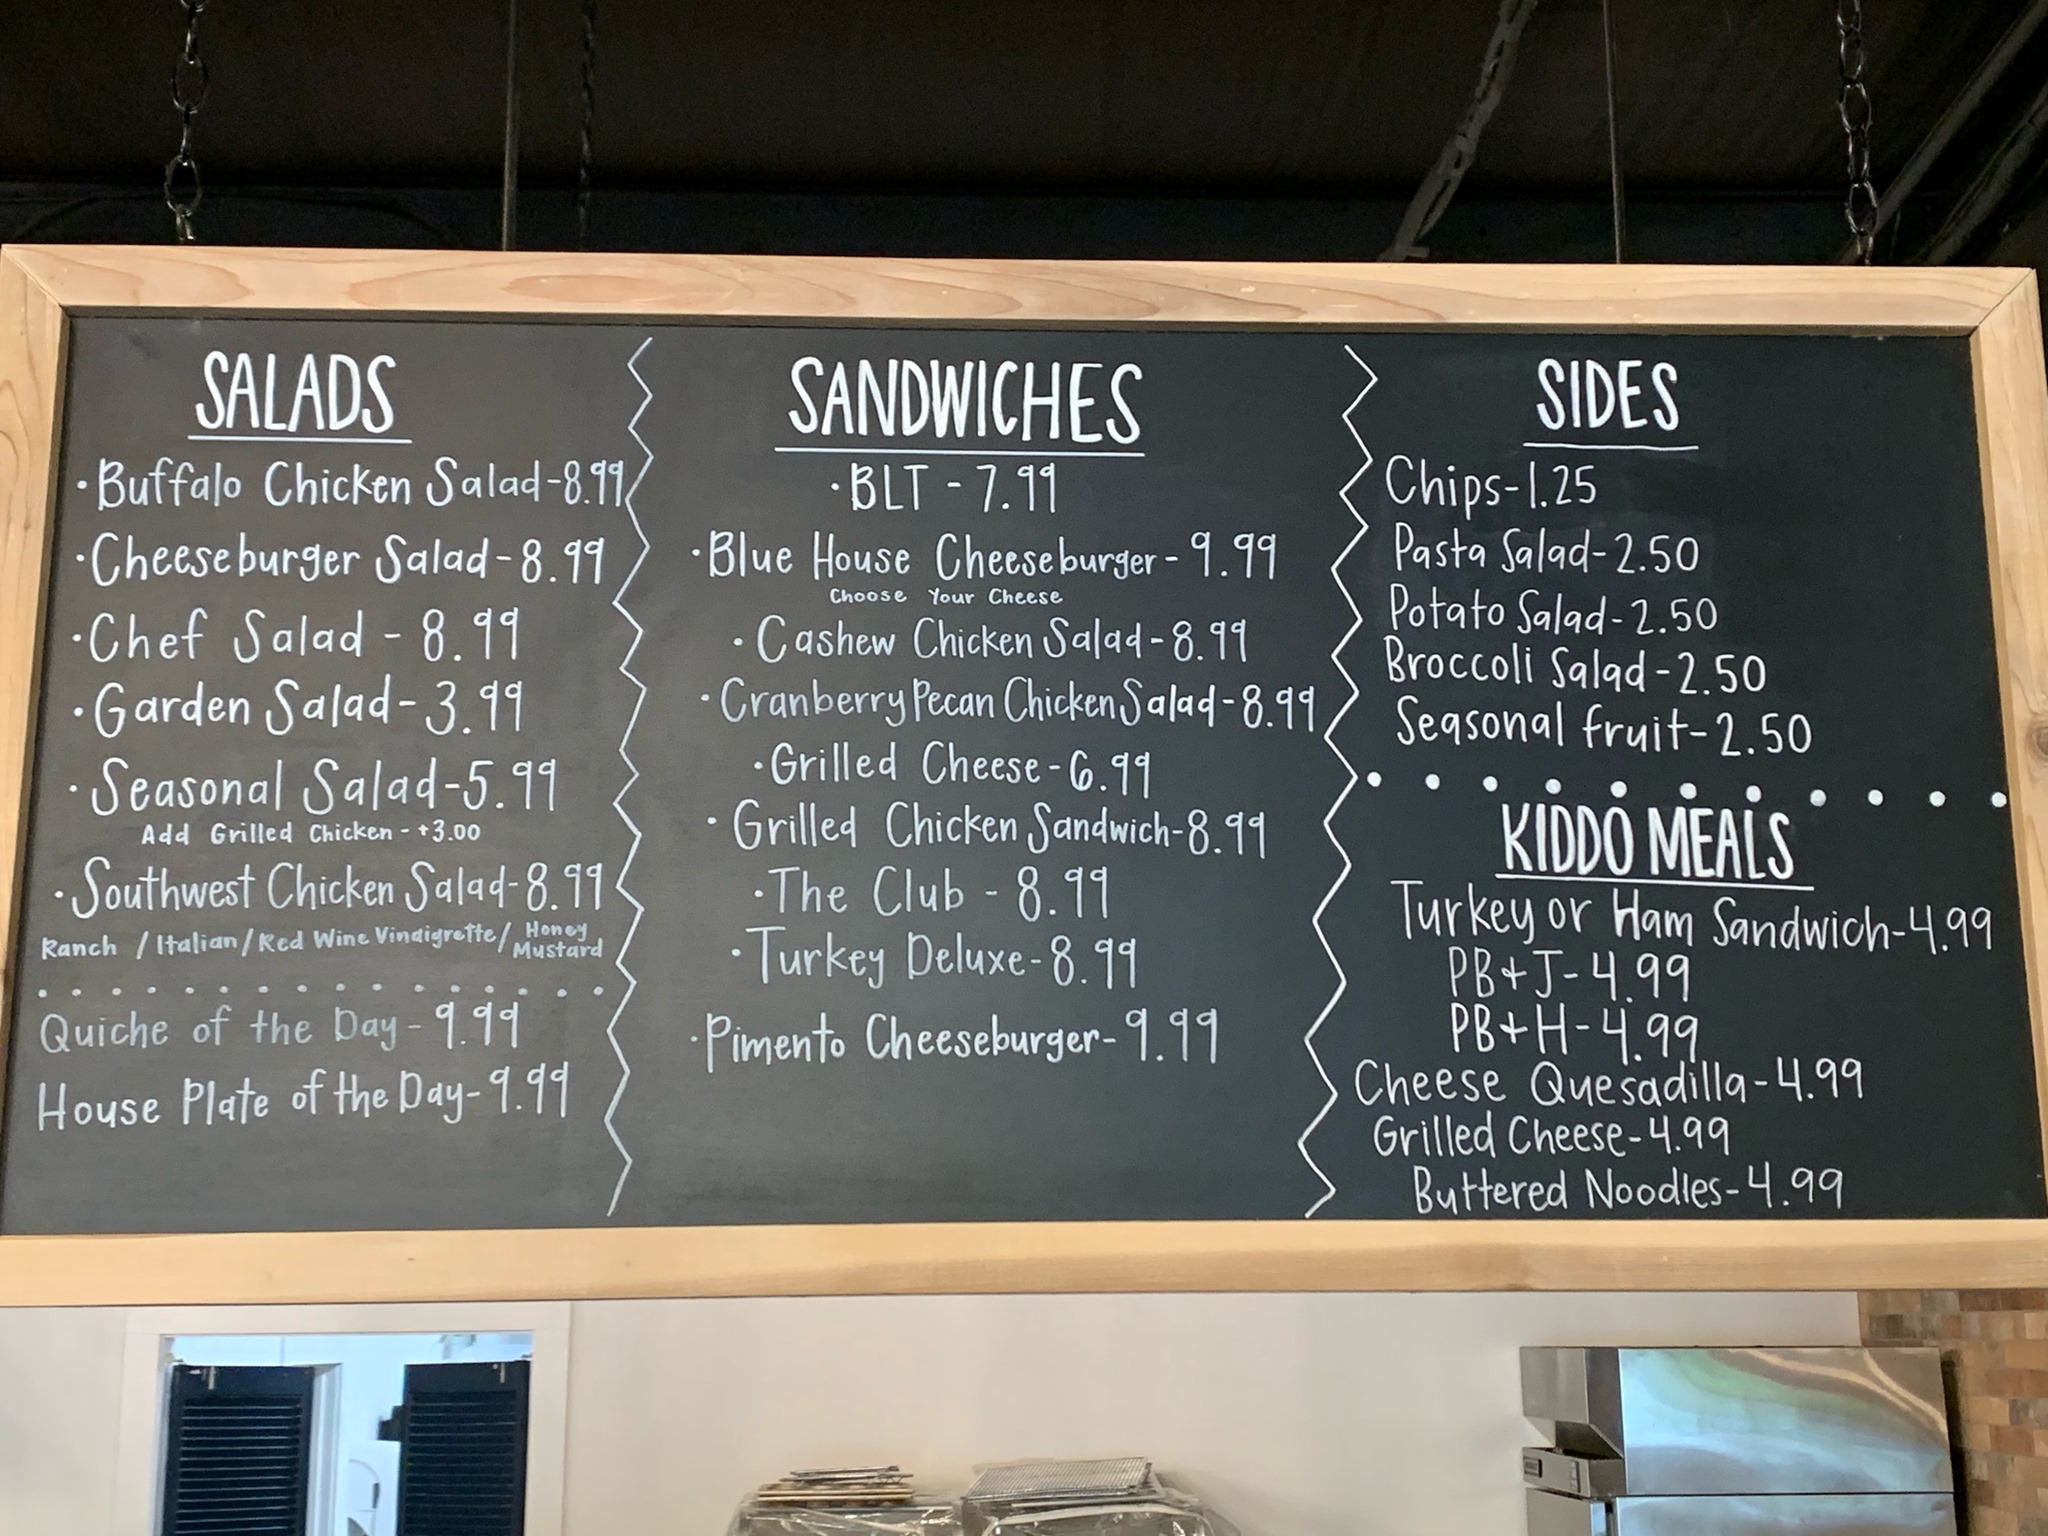 SALADS
·Buffalo Chicken Salad-8.99
·Cheeseburger Salad-8.99
·Chef Salad - 8.99
·Garden Salad-3.99
·Seasonal Salad-5.99
Add Grilled Chicken - +3.00
·Southwest Chicken Salad-8.99
Ranch / Italian / Red Wine Vinaigrette / Honey Mustard
Quiche of the Day - 9.99
House Plate of the Day-9.99
SANDWICHES
·BLT - 7.99
·Blue House Cheeseburger - 9.99
Choose Your Cheese
·Cashew Chicken Salad-8.99
·Cranberry Pecan Chicken Salad-8.99
·Grilled Cheese-6.99
·Grilled Chicken Sandwich-8.99
·The Club - 8.99
·Turkey Deluxe-8.99
·Pimento Cheeseburger-9.99
SIDES
Chips-1.25
Pasta Salad-2.50
Potato Salad-2.50
Broccoli Salad-2.50
Seasonal fruit-2.50
KIDDO MEALS
Turkey or Ham Sandwich-4.99
PB+J-4.99
PB+H-4.99
Cheese Quesadilla-4.99
Grilled Cheese-4.99
Buttered Noodles-4.99